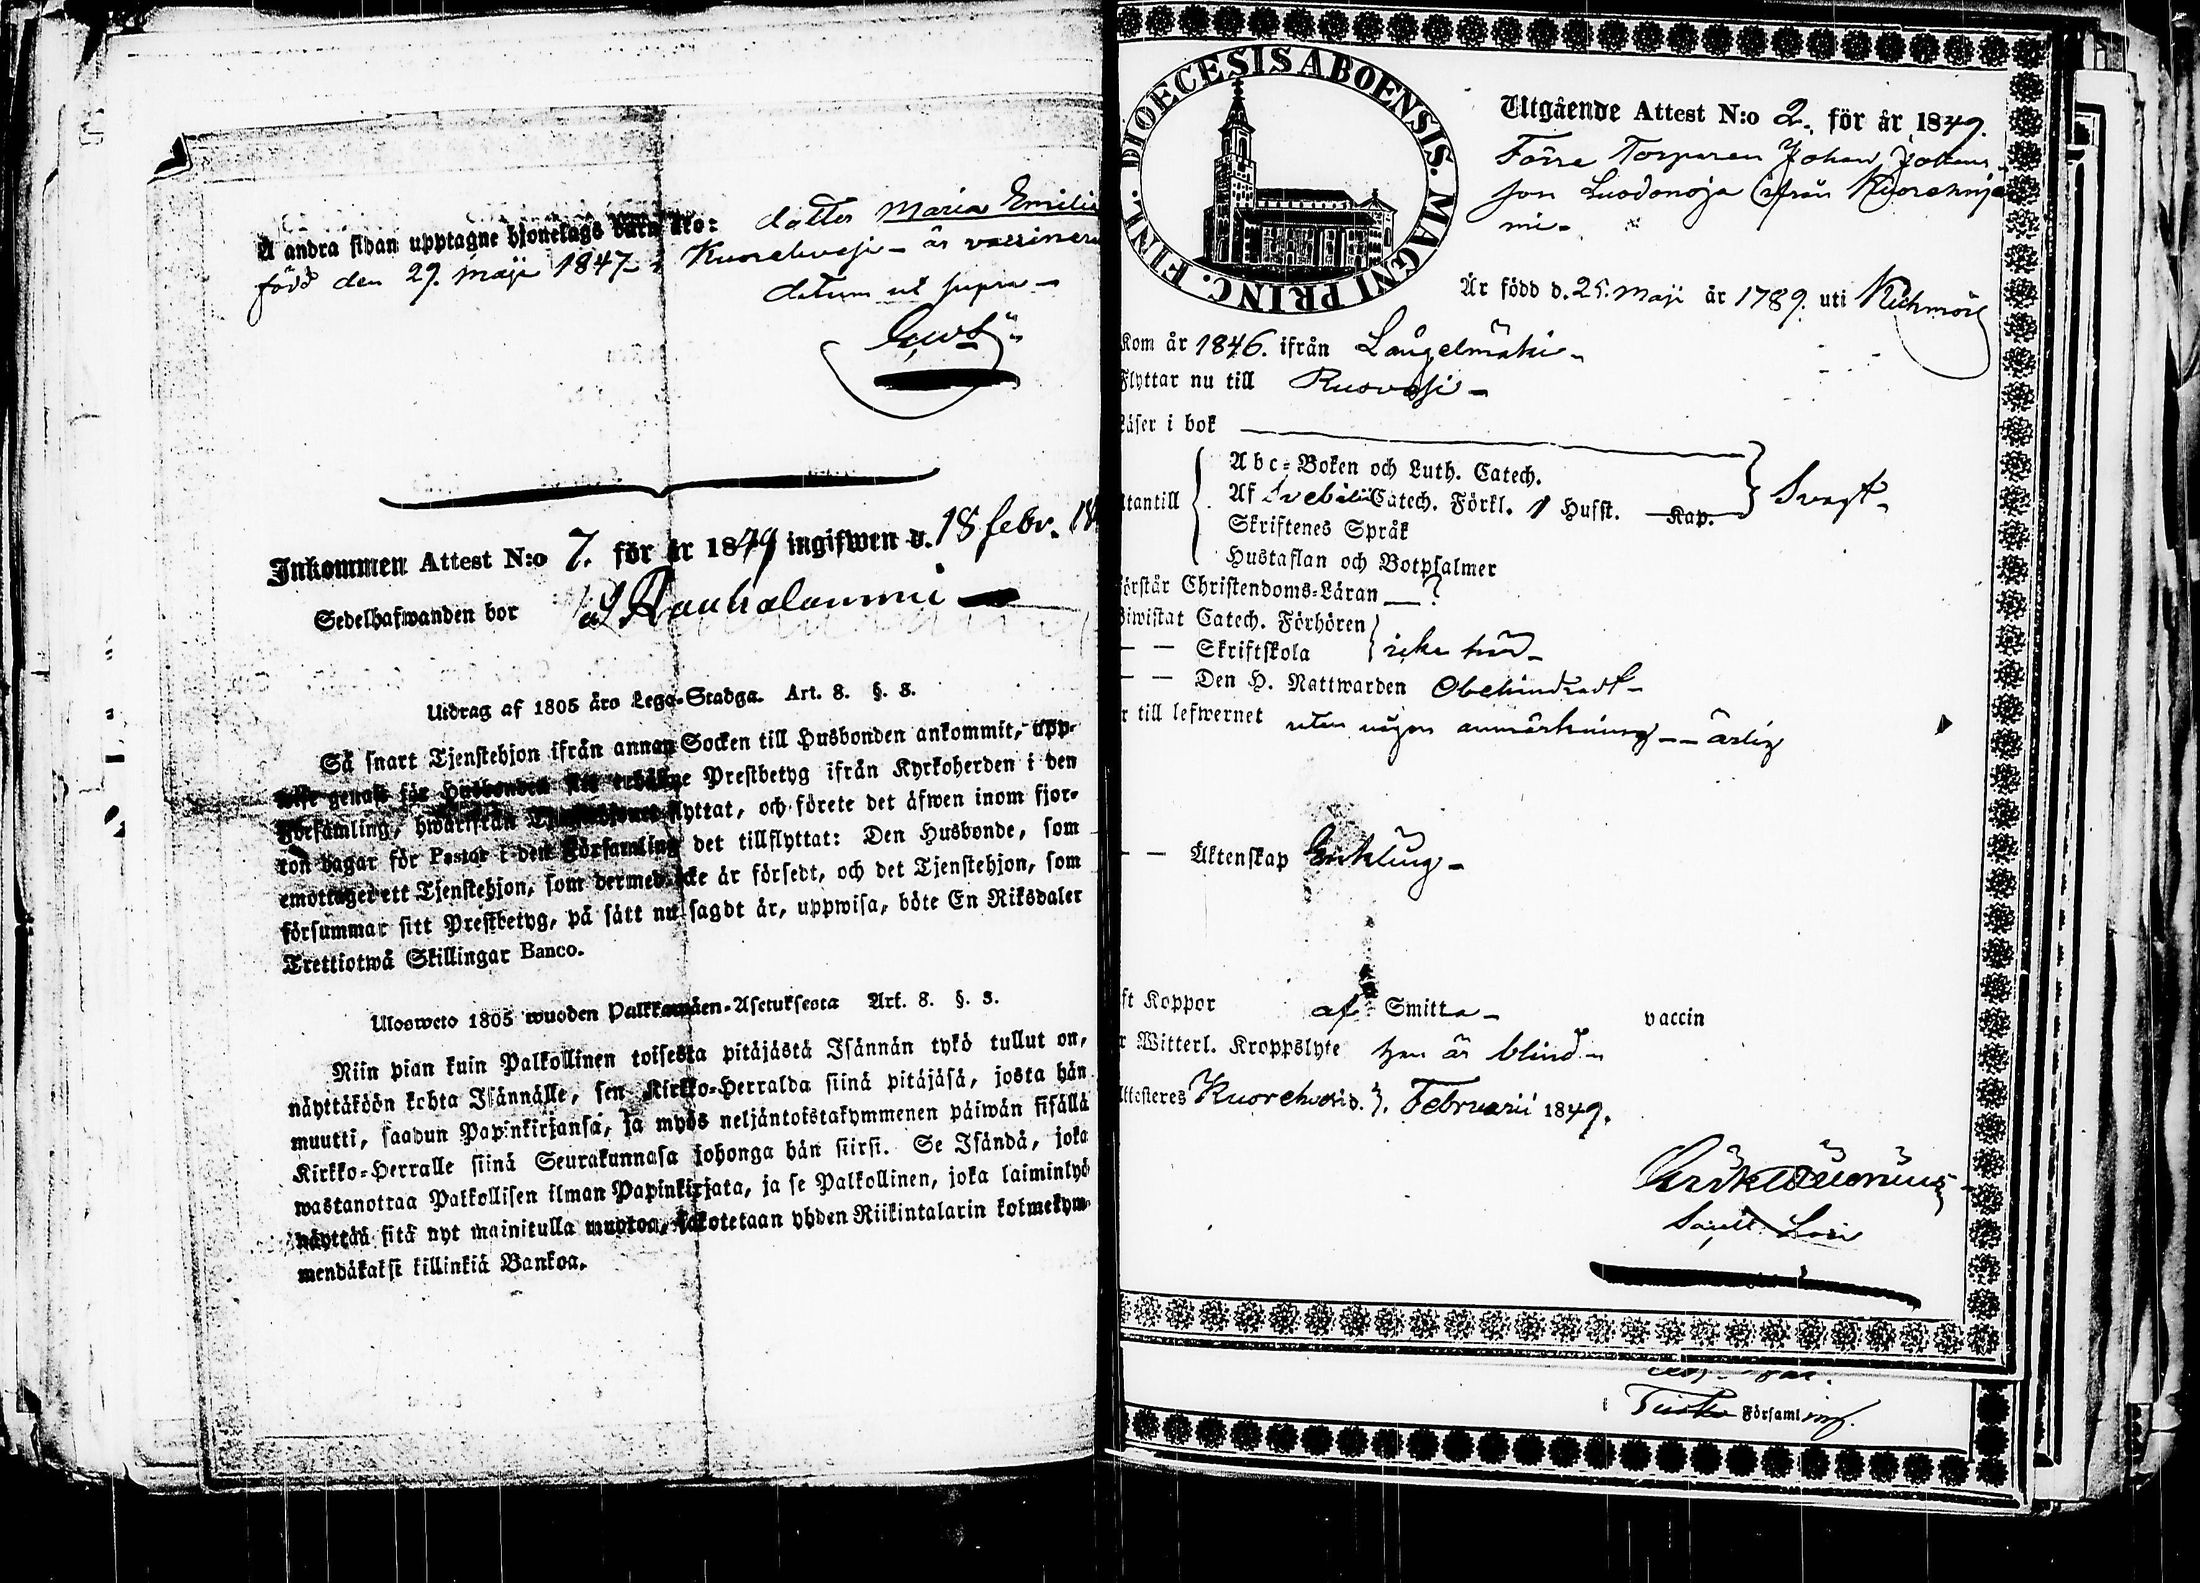 Å andra sidan upptagne hjonelags barn äro: dotter Maria Emilia
född den 29. Maji 1847 i Kuorehvesi - är vaccinerad
datum ut supra -
Inkommen Attest N:o 7. för år 1849 ingifwen d. 18 febr. 18
Sedelhafwanden bor på Rauhalammi
Utdrag af 1805 års Lego-Stadga. Art. 8. §. 3.
Så snart Tjenstehjon ifrån annan Socken till Husbonden ankommit, upp-
wise genast för Husbonden sitt erhållne Prestbetyg ifrån Kyrkoherden i den
Församling, hwarifrån Tjenstehjonet flyttat, och förete det äfwen inom fjor-
ton dagar för Pastor i den Församling det tillflyttat: Den Husbonde, som
emottager ett Tjenstehjon, som dermed icke är försedt, och det Tjenstehjon, som
försummar sitt Prestbetyg, på sätt nu sagdt är, uppwisa, böte En Riksdaler
Trettiotwå Skillingar Banco.
Ulosweto 1805 wuoden Palkkawäen-Asetuksesta Art. 8. §. 3.
Niin pian kuin Palkollinen toisesta pitäjästä Isännän tykö tullut on,
näyttäköön kohta Isännälle, sen Kirkko-Herralda siinä pitäjäsä, josta hän
muutti, saadun Papinkirjansa, ja myös neljäntoistakymmenen päiwän sisällä
Kirkko-Herralle siinä Seurakunnasa johonga hän siirsi. Se Isändä, joka
wastanottaa Palkollisen ilman Papinkirjata, ja se Palkollinen, joka laiminlyö
näyttää sitä nyt mainitulla muotoa, sakotetaan yhden Riikintalarin kolmekym-
mendäkaksi killinkiä Bankoa.
FINL. DIOECESIS ABOENSIS. MAGNI PRINC.
Utgående Attest N:o 2. för år 1849.
Förre Torparen Johan Johans-
son Luodonoja ifrån Kuorehnje
mi-
Är född d. 25. Maji år 1789. uti Kuhmois
Kom år 1846. ifrån Långelmäki
Flyttar nu till Ruovesi
Läser i bok
Utantill
Abc-Boken och Luth. Catech.
Af Svebilii Catech. Förkl. 1 Husst. Kap. Svagt
Skriftenes Språk
Hustaflan och Botpsalmer
Förstår Christendoms-Läran ?
Biwistat Catech. Förhören
— — Skriftskola icke här
— — Den H. Nattwarden Obehindradt
r till lefwernet utan någon anmärkning - ärlig
— — Äktenskap Enkling
ft Koppor af Smitta vaccin
r Witterl. Kroppslyte han är blind
Attesteres Kuorehvesi d. 3. Februarii 1849.
i Församling